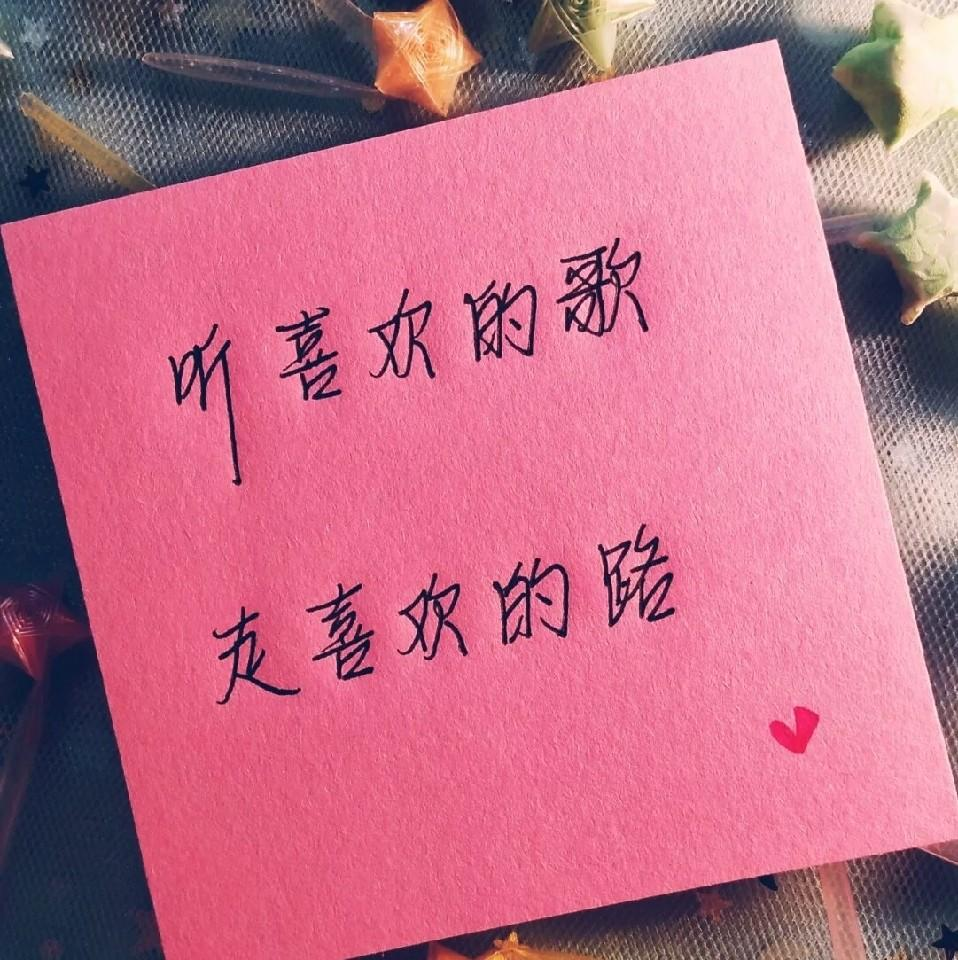 听喜欢的歌
走喜欢的路